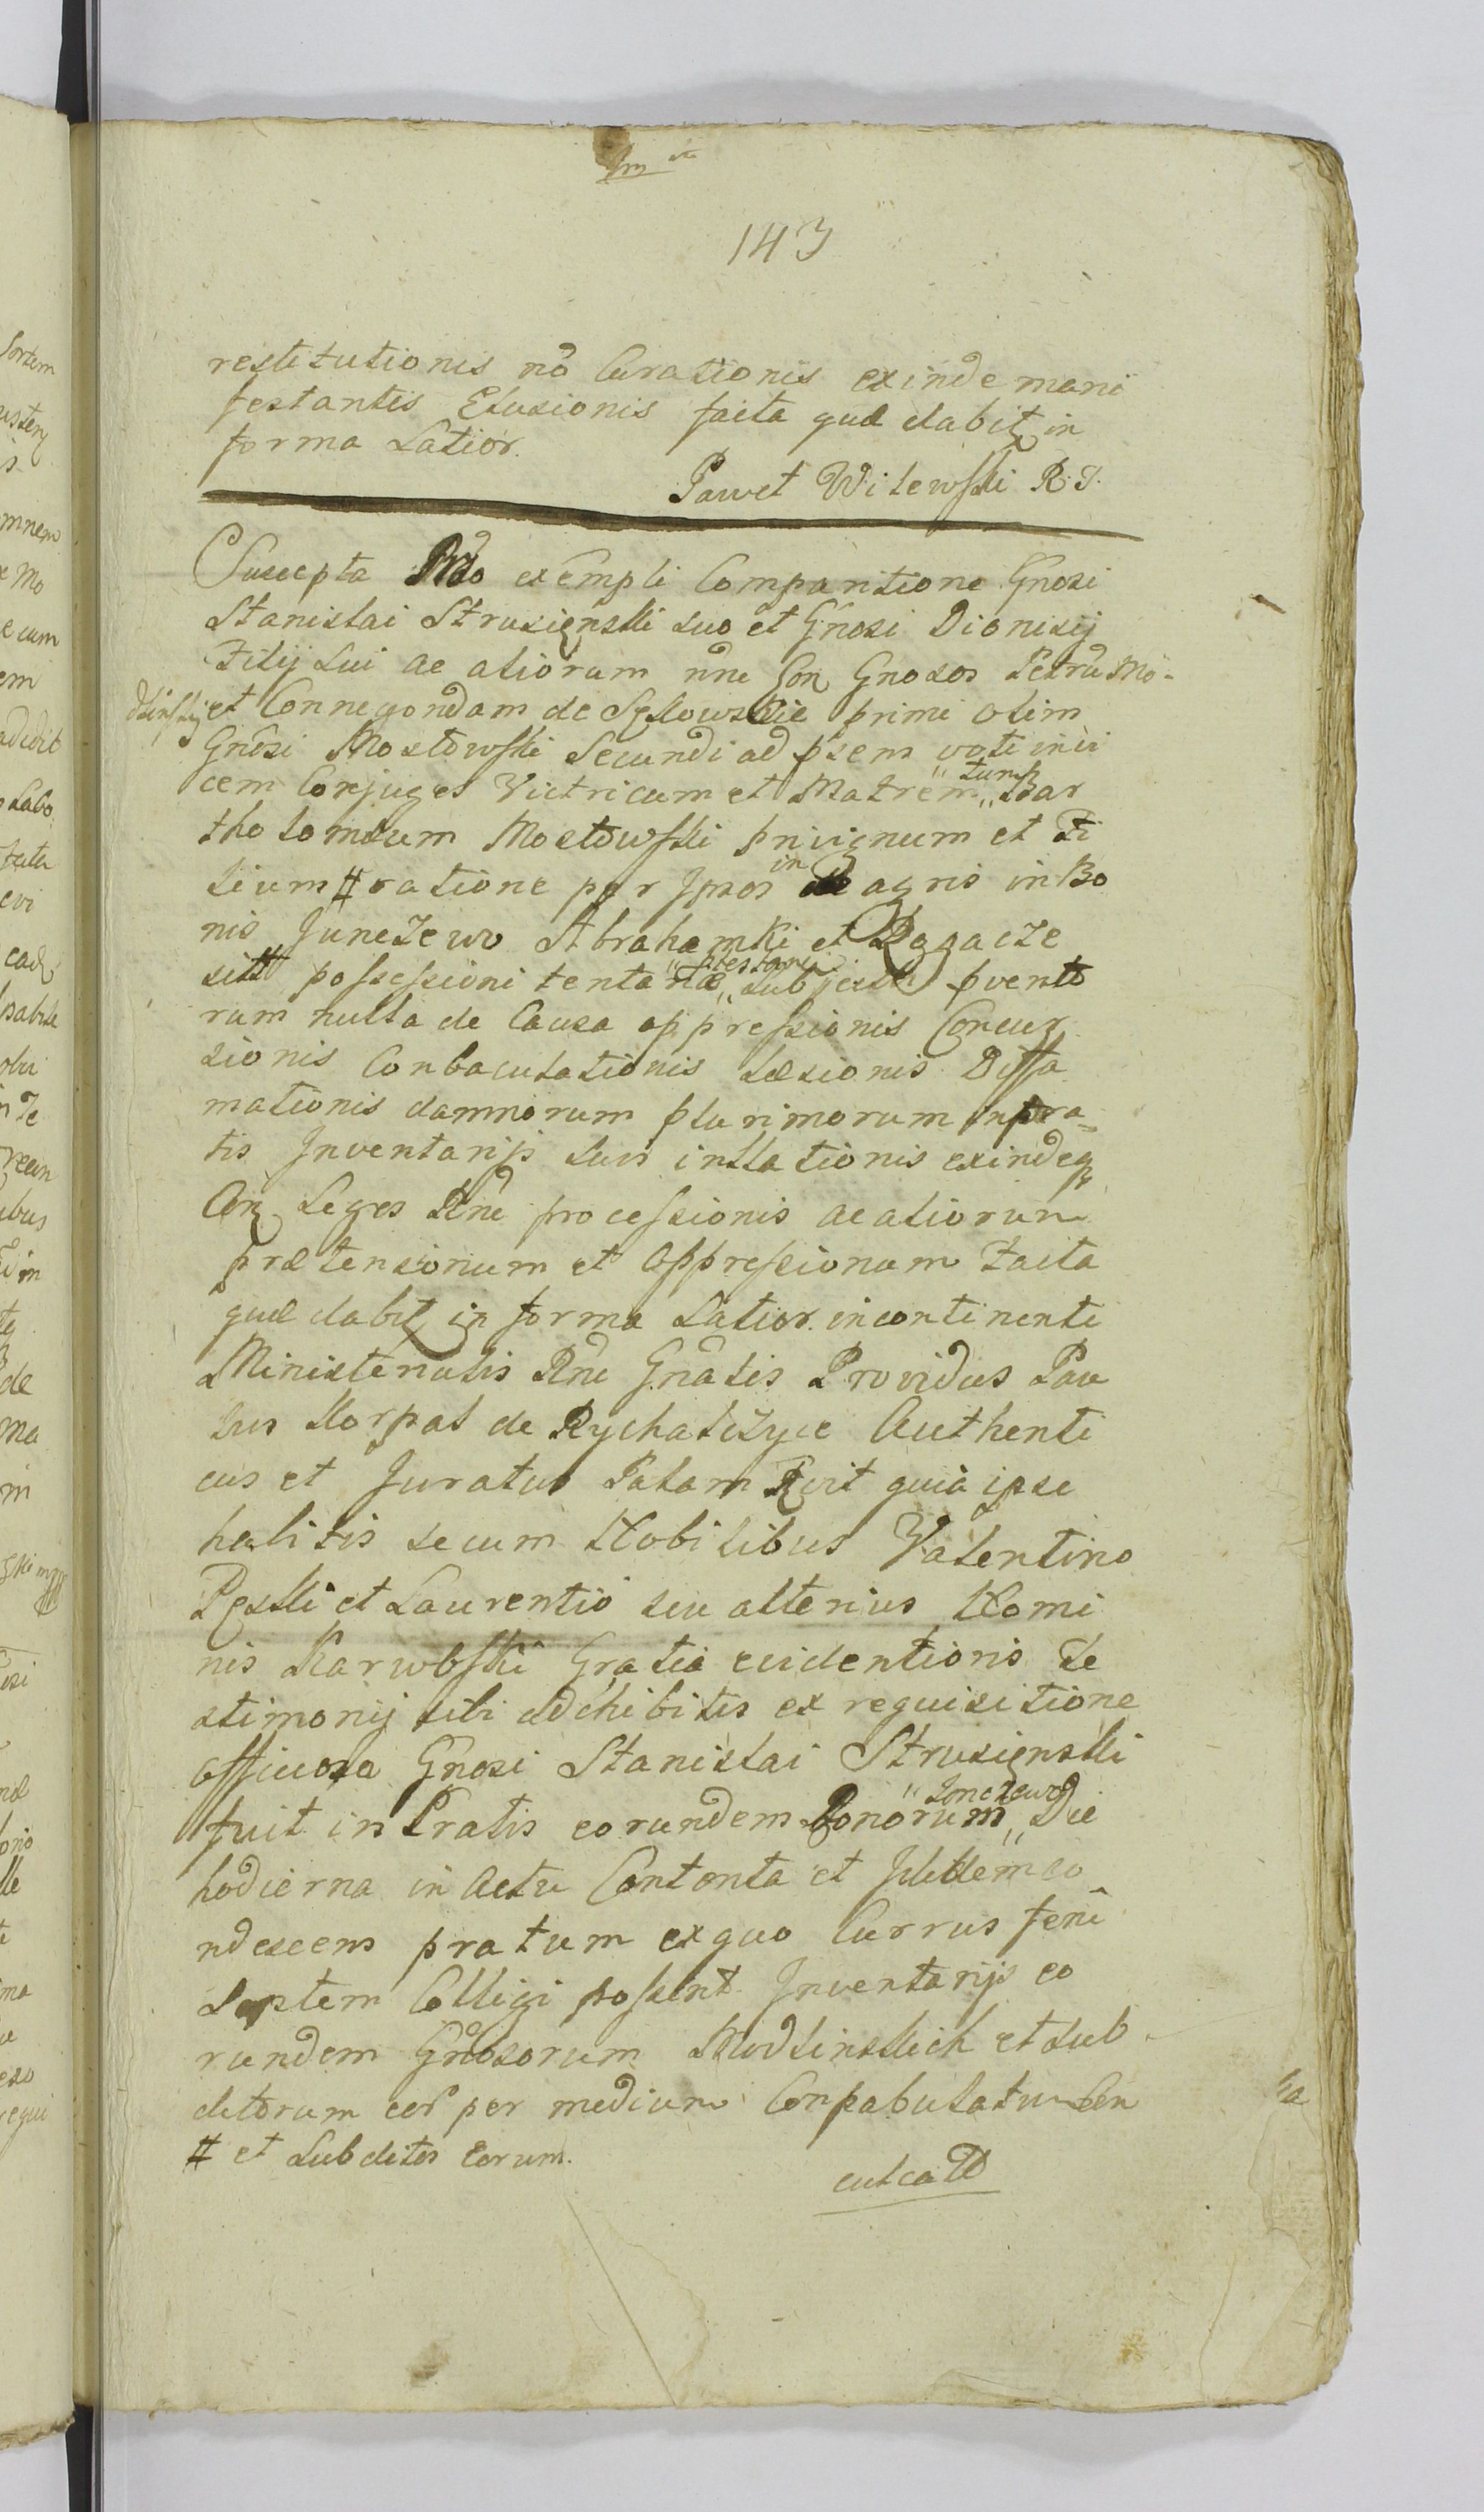 143
restitutionis nõ Curationis exinde mani
festantis Elusionis facta quæ dabit in
forma Latior.
Paweł Witewski R. J.
Suscepta exempli Comparitione Gnosi
Stanislai Strusięnski suo et Gnosi Dionisij
Filij Sui ac aliorum nne Con Gnosos Petrũ Mo-
dlinskij et Connegondam de Sęklowskie primi olim
Gnosi Mostowski Secundi ad psens voti invi
cem Conjuges Victricum et Matrem "tum"
Bar
tholomæum Mostowski privignum et Fi
lium # ratione per Ipsos in agris in Bo
nis Junczewo Abrahamki et Rogacze
sitis possessioni tentariæ "ptestans" subjectis pvento
rum nulla de Causa oppressionis Concur
sionis Conbaculationis læsionis Diffa
mationis damnorum plurimorum in pra=
tis Inventarijs suis illationis exindeq
Con Leges Rne processionis ac aliorum
prætensionum et oppressionum Facta
quæ dabit in forma Latior. incontinenti
Ministerialis Rni Gnalis Providus Pau
lus Korpal de Rychałczyce Authenti
cus et Juratus Palam Rvit quia ipse
habitis secum Nobilibus Valentino
Pęski et Laurentio seu alterius Nomi
nis Karwoski Gratia evidentioris Te
stimonij sibi adhibitis ex requisitione
officiosa Gnosi Stanislai Strusięnski
fuit in Pratis eorundem Bonorum "Jonczewo" Die
hodierna in Actu Contenta et Ibidem co
ndescens pratum ex quo Currus feni
Septem Colligi possent Inventarijs eo
rundem Gnosorum Modlinskich et sub
ditorum eor per medium Conpabulatum Con
# et Subditos Eorum.
culcatũ